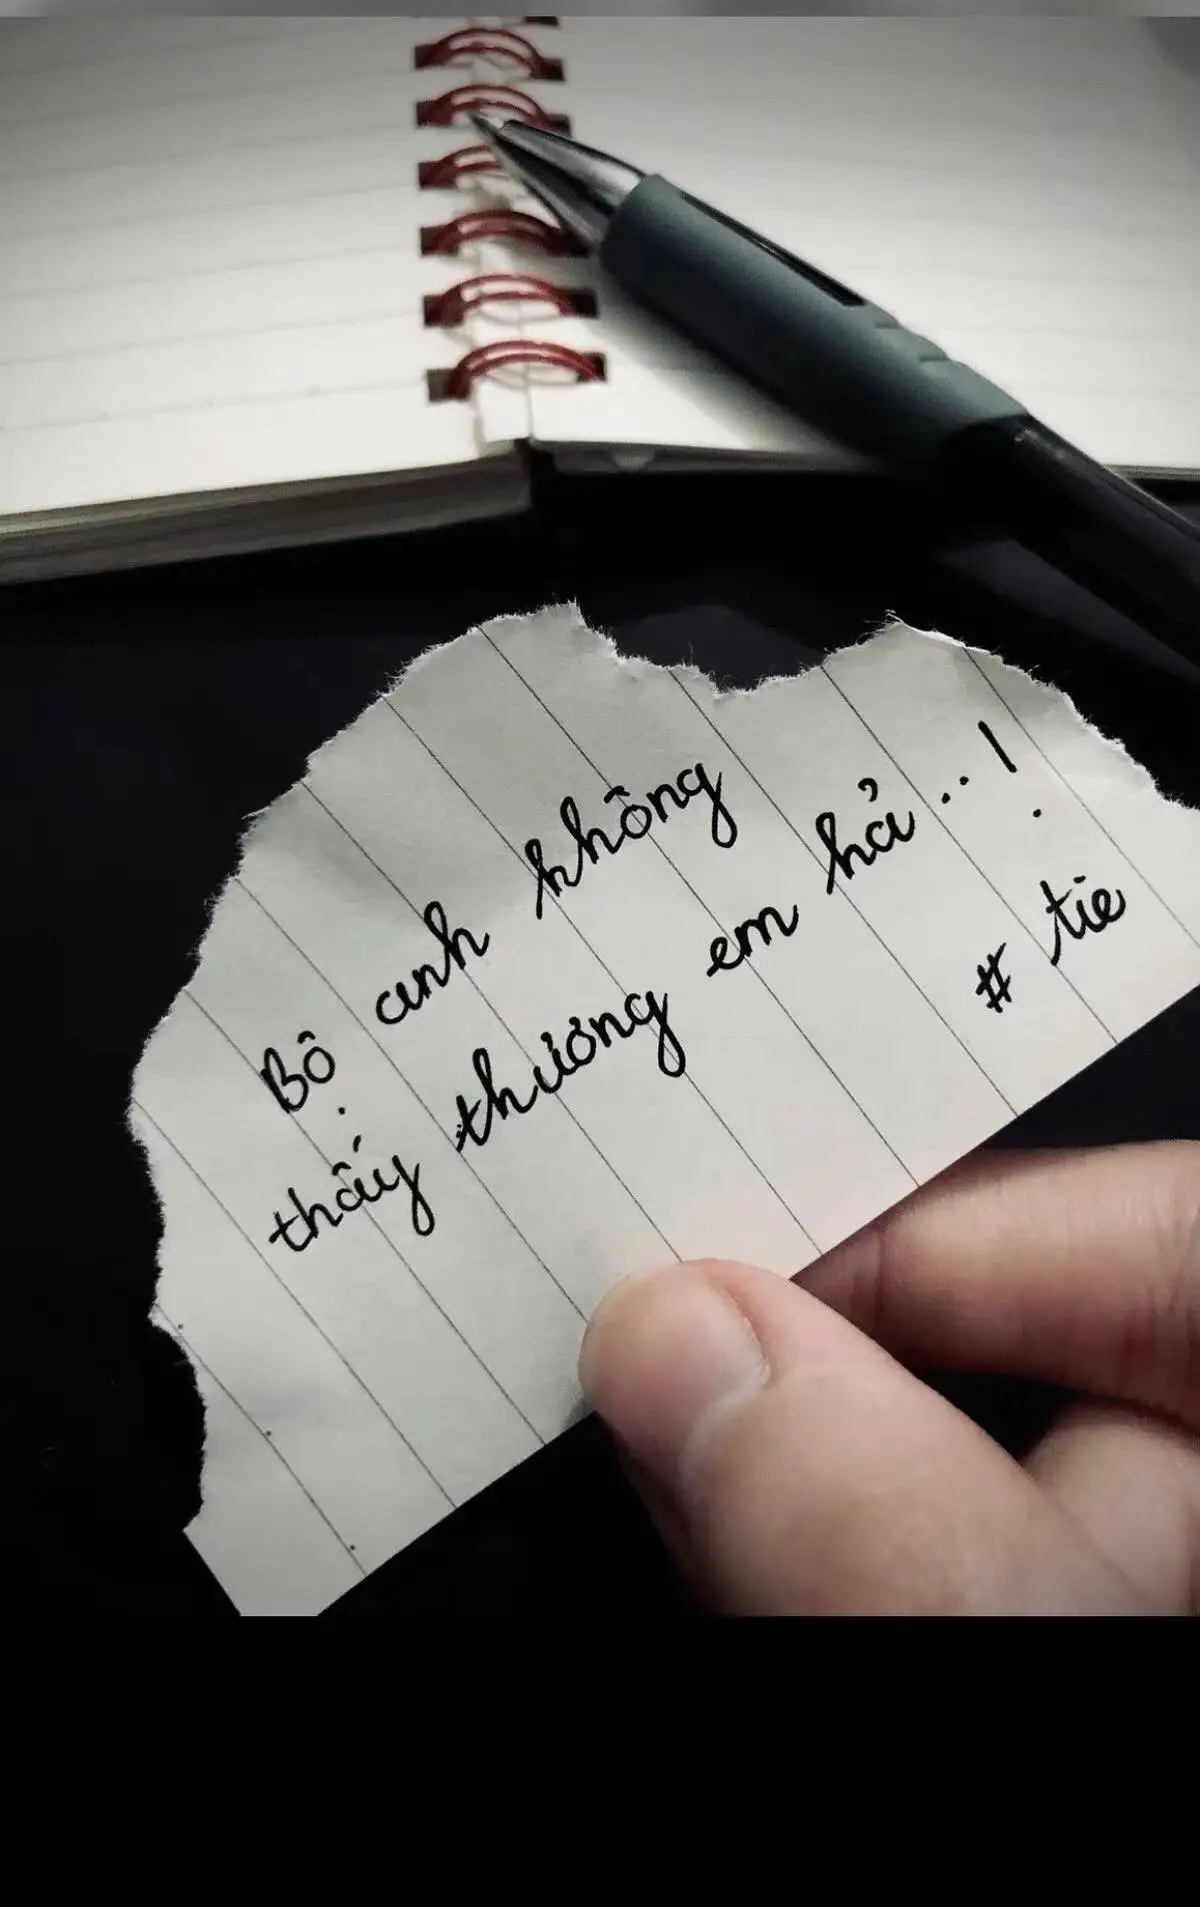 Bộ anh không
thấy thương em hả...!
# tie